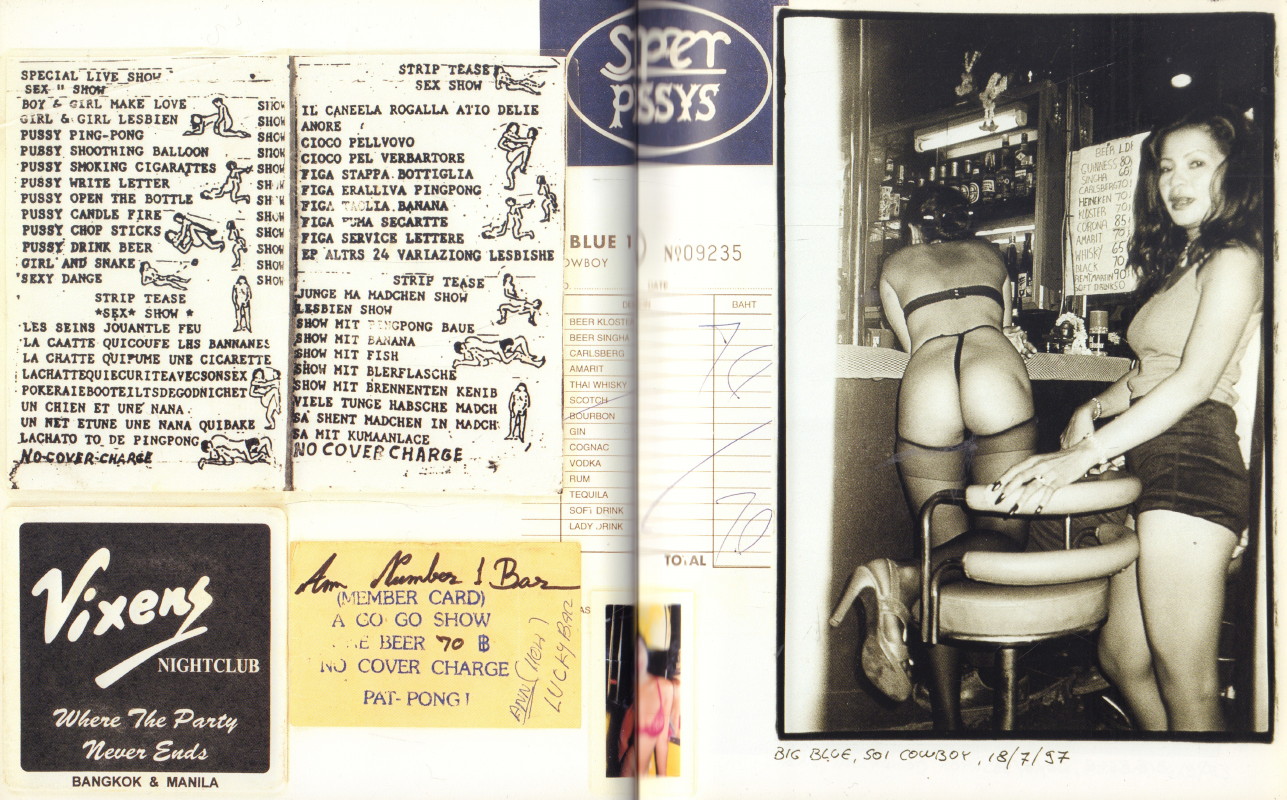 SPECIAL LIVE SHOW
SEX " SHOW
BOY & GIRL MAKE LOVE SHOW
GIRL & GIRL LESBIEN SHOW
PUSSY PING-PONG SHOW
PUSSY SHOOTHING BALLOON SHOW
PUSSY SMOKING CIGARATTES SHOW
PUSSY WRITE LETTER SHOW
PUSSY OPEN THE BOTTLE SHOW
PUSSY CANDLE FIRE SHOW
PUSSY CHOP STICKS SHOW
PUSSY DRINK BEER SHOW
GIRL AND SNAKE SHOW
SEXY DANGE SHOW
STRIP TEASE
*SEX* SHOW *
LES SEINS JOUANTLE FEU
LA CAATTE QUICOUFE LHS BANNANES
LA CHATTE QUIPUME UNE CIGARETTE
LACHATTEQUIECURITEAVECSONSEX
POKERAIEBOOTEILTSDEGODNICHET
UN CHIEN ET UNE NANA
UN NET ETUNE UNE NANA QUIBAKE
LACHATO TO DE PINGPONG
NO COVER CHARGE
STRIP TEASE
SEX SHOW
IL CANEELA ROGALLA ATIO DELIE
ANORE
CIOCO PELLVOVO
CIOCO PEL VERBARTORE
FIGA STAPPA BOTTIGLIA
FIGA ERALLIVA PINGPONG
FIGA TAGLIA BANANA
FIGA FUMA SECARTTE
FIGA SERVICE LETTERE
EP ALTRS 24 VARIAZIONG LESBISHE
STRIP TEASE
JUNGE MA MADCHEN SHOW
LESBIEN SHOW
SHOW MIT PINGPONG BAUE
SHOW MIT BANANA
SHOW MIT FISH
SHOW MIT BLERFLASCHE
SHOW MIT BRENNENTEN KENIB
VIELE TUNGE HABSCHE MADCH
SA SHENT MADCHEN IN MADCH
SA MIT KUMAANLACE
NO COVER CHARGE
Vixens
NIGHTCLUB
Where The Party
Never Ends
BANGKOK & MANILA
Ann Number 1 Bar
(MEMBER CARD)
A GO GO SHOW
BEER 70 ฿
NO COVER CHARGE
PAT-PONG 1
LUCKY BAR
SUPER
PUSSYS
BLUE 1
OWBOY
Nº 09235
DATE
BAHT
BEER KLOST
BEER SINGHA
CARLSBERG
AMARIT
THAI WHISKY
SCOTCH
BOURBON
GIN
COGNAC
VODKA
RUM
TEQUILA
SOFT DRINK
LADY DRINK
70
TOTAL
BEER LD
GUINNESS 80
SINGHA 60
CARLSBERG 70
HEINEKEN 70
KLOSTER 70
CORONA 85
AMARIT 70
WHISKY 65
BLACK 70
REMY MARTIN 90
SOFT DRINK 50
BIG BLUE, SOI COWBOY, 18/7/97